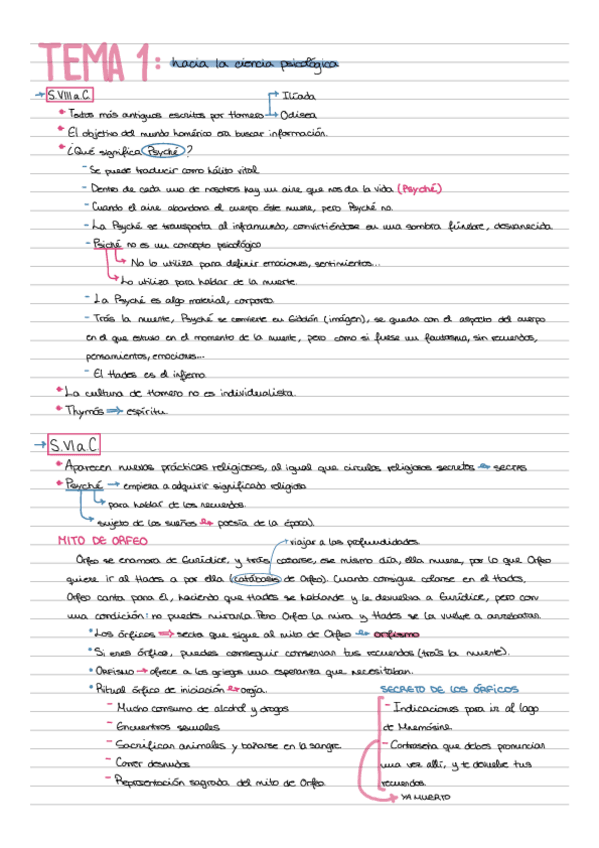 TEMA 1: hacia la ciencia psicológica
→ S. VIII a.C. → Ilíada
• Textos más antiguos escritos por Homero → Odisea
• El objetivo del mundo homérico era buscar información.
• ¿Qué significa Psyché?
- Se puede traducir como hálito vital
- Dentro de cada uno de nosotros hay un aire que nos da la vida (Psyché)
- Cuando el aire abandona el cuerpo éste muere, pero Psyché no.
- La Psyché se transporta al inframundo, convirtiéndose en una sombra fúnebre, desvanecida
- Psiché no es un concepto psicológico
→ No lo utiliza para definir emociones, sentimientos...
→ Lo utiliza para hablar de la muerte.
- La Psyché es algo material, corpóreo
- Trás la muerte, Psyché se convierte en Eidolón (imágen), se queda con el aspecto del cuerpo
en el que estuvo en el momento de la muerte, pero como si fuese un fantasma, sin recuerdos,
pensamientos, emociones...
- El Hades es el infierno
• La cultura de Homero no es individualista.
• Thymós ⇒ espíritu.
→ S. VI a.C.
• Aparecen nuevas prácticas religiosas, al igual que círculos religiosos secretos → sectas
• Psyché → empieza a adquirir significado religioso
→ para hablar de los recuerdos.
→ sujeto de los sueños → poesía de la época).
MITO DE ORFEO → viajar a las profundidades
Orfeo se enamora de Eurídice, y trás casarse, ese mismo día, ella muere, por lo que Orfeo
quiere ir al Hades a por ella (catábasis de Orfeo). Cuando consigue colarse en el Hades,
Orfeo canta para él, haciendo que Hades se hablande y le devuelva a Eurídice, pero con
una condición: no puedes mirarla. Pero Orfeo la mira y Hades se la vuelve a arrebatar
• Los órficos ⇒ secta que sigue al mito de Orfeo → orfismo
• Si eres órfico, puedes conseguir conservar tus recuerdos (trás la muerte).
• ORFISMO → ofrece a los griegos una esperanza que necesitaban.
• Ritual órfico de iniciación → orgía.
- Mucho consumo de alcohol y drogas
- Encuentros sexuales
- Sacrifican animales y bañarse en la sangre
- Correr desnudos
- Representación sagrada del mito de Orfeo.
SECRETO DE LOS ÓRFICOS
- Indicaciones para ir al lago
de Mnemósine.
- Contraseña que debes pronunciar
una vez allí, y te devuelve tus
recuerdos.
→ YA MUERTO